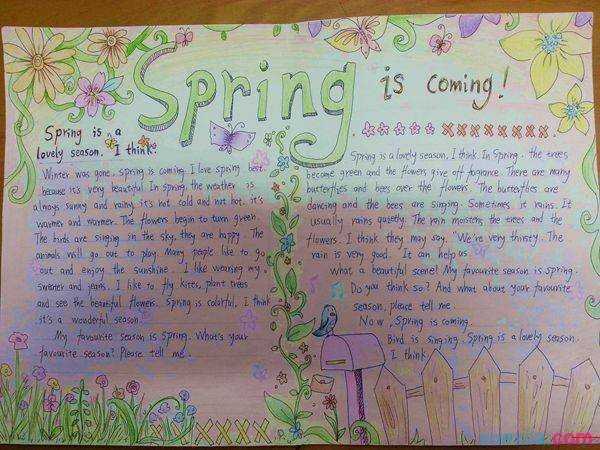 Spring is coming!
Spring is a
lovely season. I think.
Winter was gone. spring is coming. I love spring best
because it's very beautiful. In spring the weather is
always sunny and rainy, it's not cold and not hot. it's
warmer and warmer. The flowers begin to turn green.
The birds are singing in the sky, they are happy. The
animals will go out to play. Many people like to go
out and enjoy the sunshine. I like wearing my
sweater and jeans. I like to fly kites, plant trees
and see the beautiful flowers. Spring is colorful, I think
it's a wonderful season.
My favourite season is Spring. What's your
favourite season? Please tell me.
Spring is a lovely season, I think. In Spring. the trees
become green and the flowers give off fragrance. There are many
butterflies and bees over the flowers. The butterflies are
dancing and the bees are singing. Sometimes, it rains. It
usually rains quietly. The rain moistens the trees and the
flowers. I think they may say, "We're very thirsty. The
rain is very good." It can help us.
what a beautiful scene! My favourite season is spring.
Do you think so? And what about your favourite
season, please tell me.
Now, Spring is coming.
Bird is singing. Spring is a lovely season.
I think.
.com